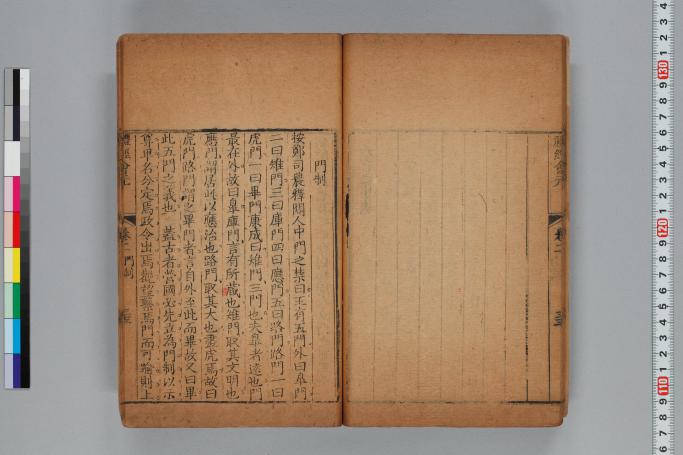 門制
按鄭司農釋閽人中門之禁曰王有五門外曰皐門
二曰雉門三曰庫門四曰應門五曰路門路門一曰
虎門一曰畢門康成曰雉門三門也夫皐者遠也門
最在外故曰皐庫門言有所藏也雉門取其文明也
應門謂居此以應治也路門取其大也畫虎焉故曰
虎門路門謂之畢門者言自外至此而畢故又曰畢
此五門之義也蓋古者營國必先立為門制以示
尊卑名分定焉政令出焉觀望繫焉門而可踰則上
禮經會元
卷二 門制
禮經會元
卷二